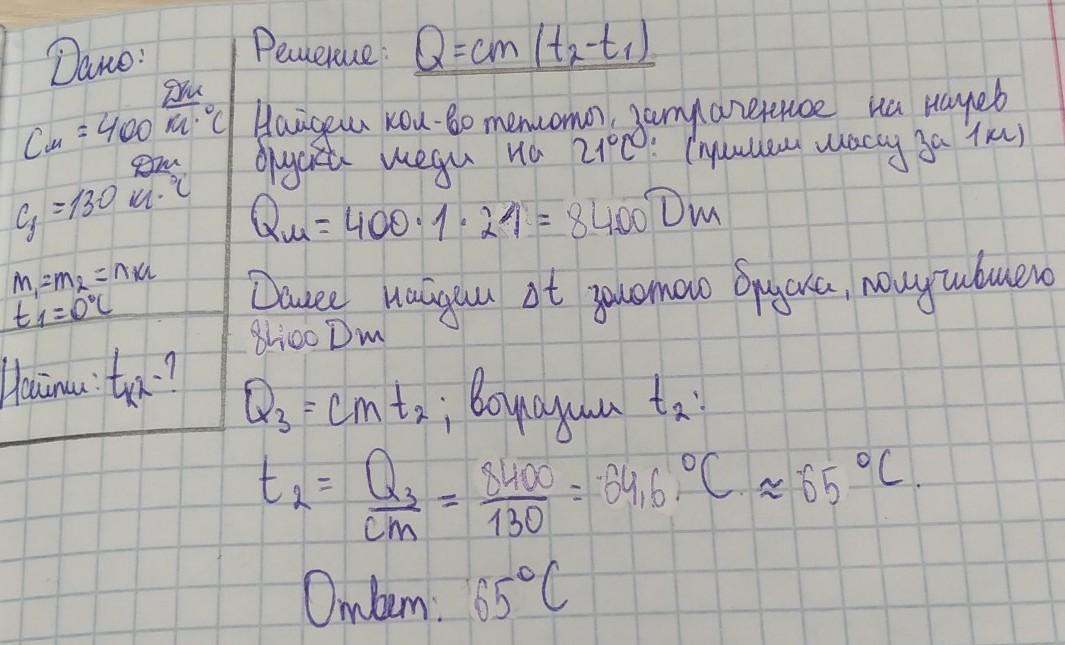 Дано:
Cм = 400 Дж/кг·°C
Cз = 130 Дж/кг·°C
m₁=m₂=n кг
t₁=0°C
Найти: tк2-?
Решение: Q=cm(t₂-t₁)
Найдем кол-во теплоты, затраченное на нагрев
бруска меди на 21°C: (примем массу за 1кг)
Qм = 400·1·21 = 8400 Дж
Далее найдем Δt золотого бруска, получившего
8400 Дж
Qз = cmt₂; выразим t₂:
t₂ = Qз/cm = 8400/130 = 64,6 °C ≈ 65 °C.
Ответ: 65°C